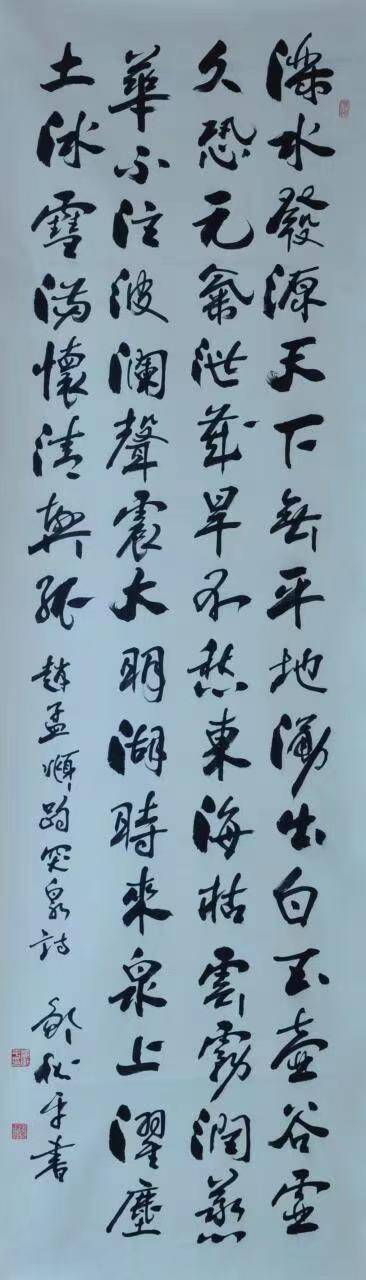 濼水發源天下無平地湧出白玉壺谷虛
久恐元氣泄歲旱不愁東海枯雲霧潤蒸
華不注波瀾聲震大明湖時來泉上濯塵
土冰雪滿懷清興孤 趙孟頫趵突泉詩 平書